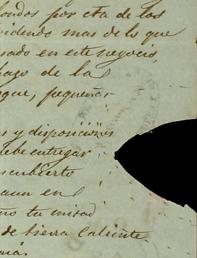 fondos por cta de los
videndo mas de lo que
sado en este negocio,
pago de la
que, pequeños
s y disposiciones
debe entregar
scubierto
aun en
ño tu mitad
de tierra caliente.
más.